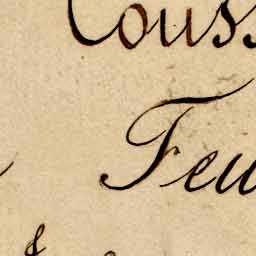 Couss
Feu
&